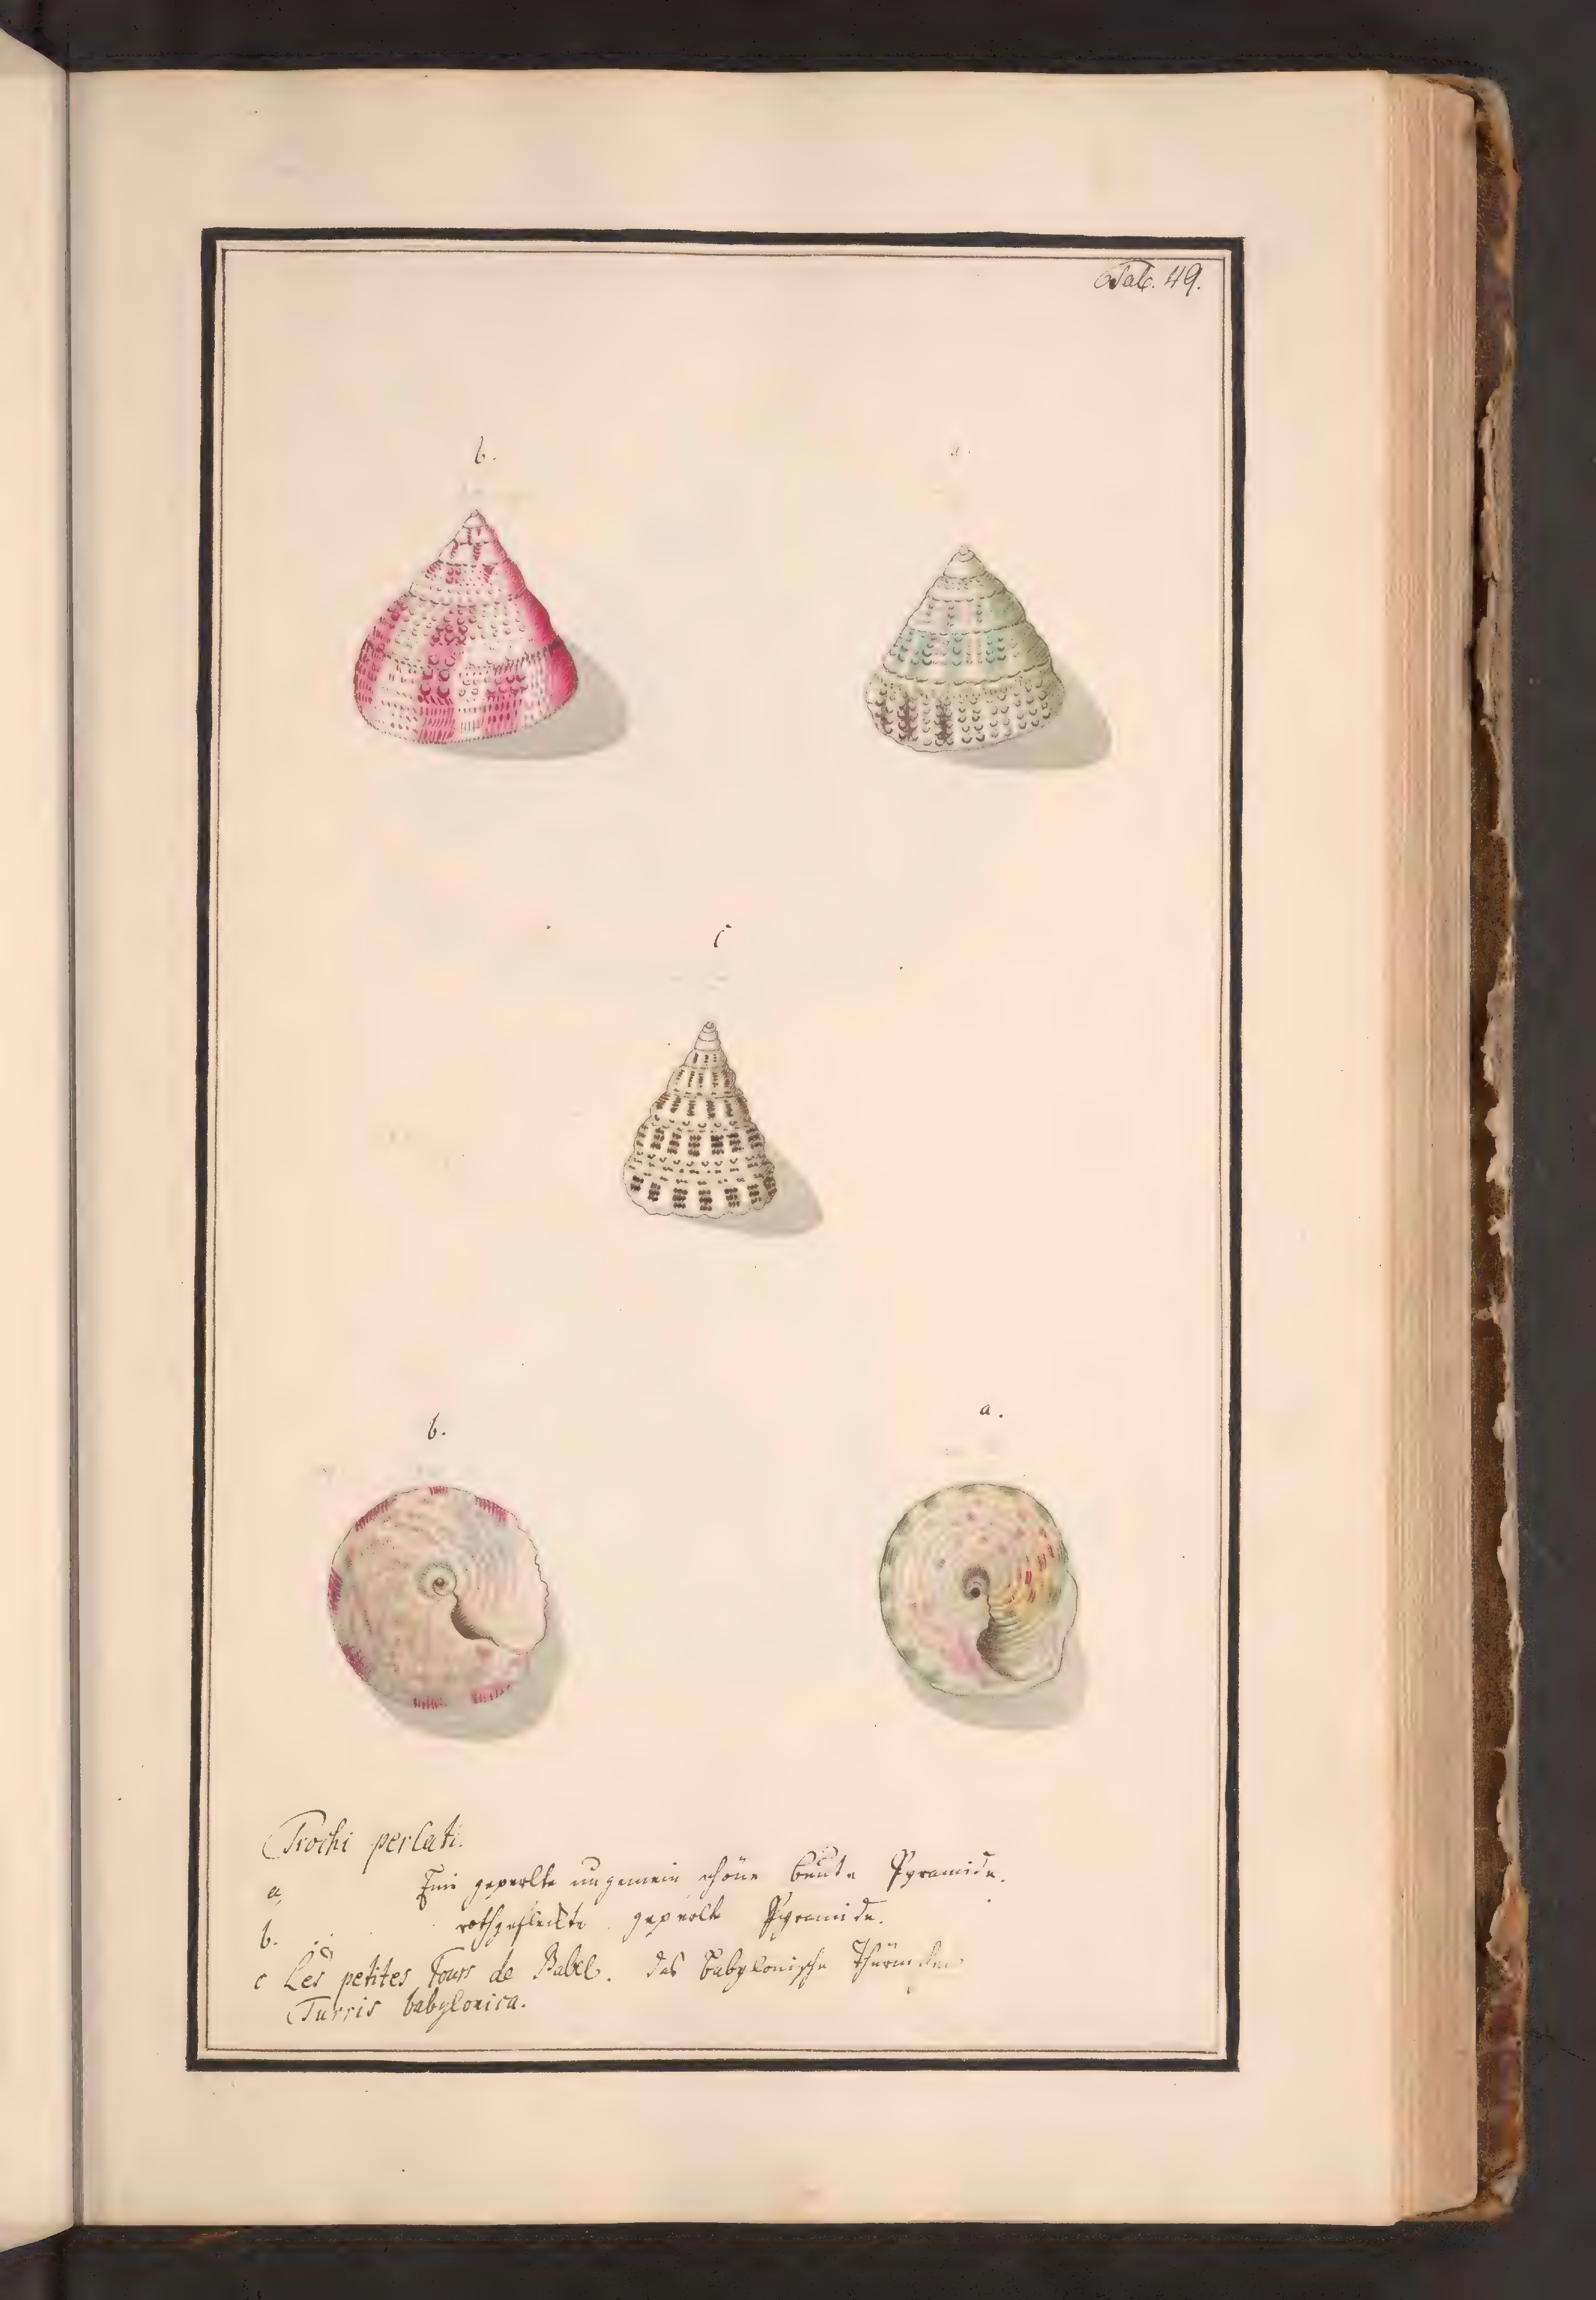 Tab. 49.
b.
a.
c
b.
a.
Trochi perlati.
a, Eine geperlte ungemein schöne bunte Pyramide.
b. rothgefleckte geperlte Pyramide.
c Les petites Tours de Babel. das babylonische Thürmchen
Turris babylonica.